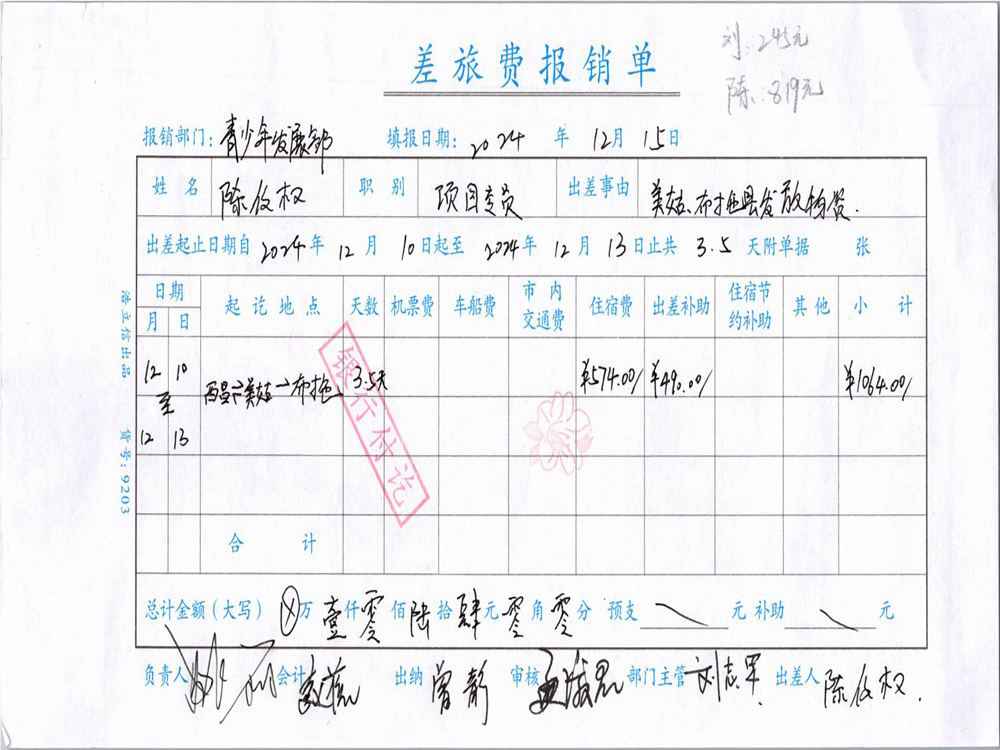 刘:245元
差旅费报销单
陈:819元
报销部门:青少年发展部 填报日期:2024 年 12月 15日
姓名 陈仪权 职别 项目专员 出差事由 美姑、布拖县发放物资.
出差起止日期自2024年 12 月 10日起至 2024年 12 月 13日止共 3.5 天附单据 张
日期 起讫地点 天数 机票费 车船费 市内交通费 住宿费 出差补助 住宿节约补助 其他 小计
月 日
12 10 西昌→美姑→布拖 3.5天 ¥574.00/ ¥490.00/ ¥1064.00/
至
12 13
银行付讫
合计
总计金额(大写) ⊗万壹仟零佰陆拾肆元零角零分 预支 元 补助 元
负责人 会计 出纳 曾静 审核 部门主管 刘志军. 出差人 陈仪权.
立信出品 货号:9203